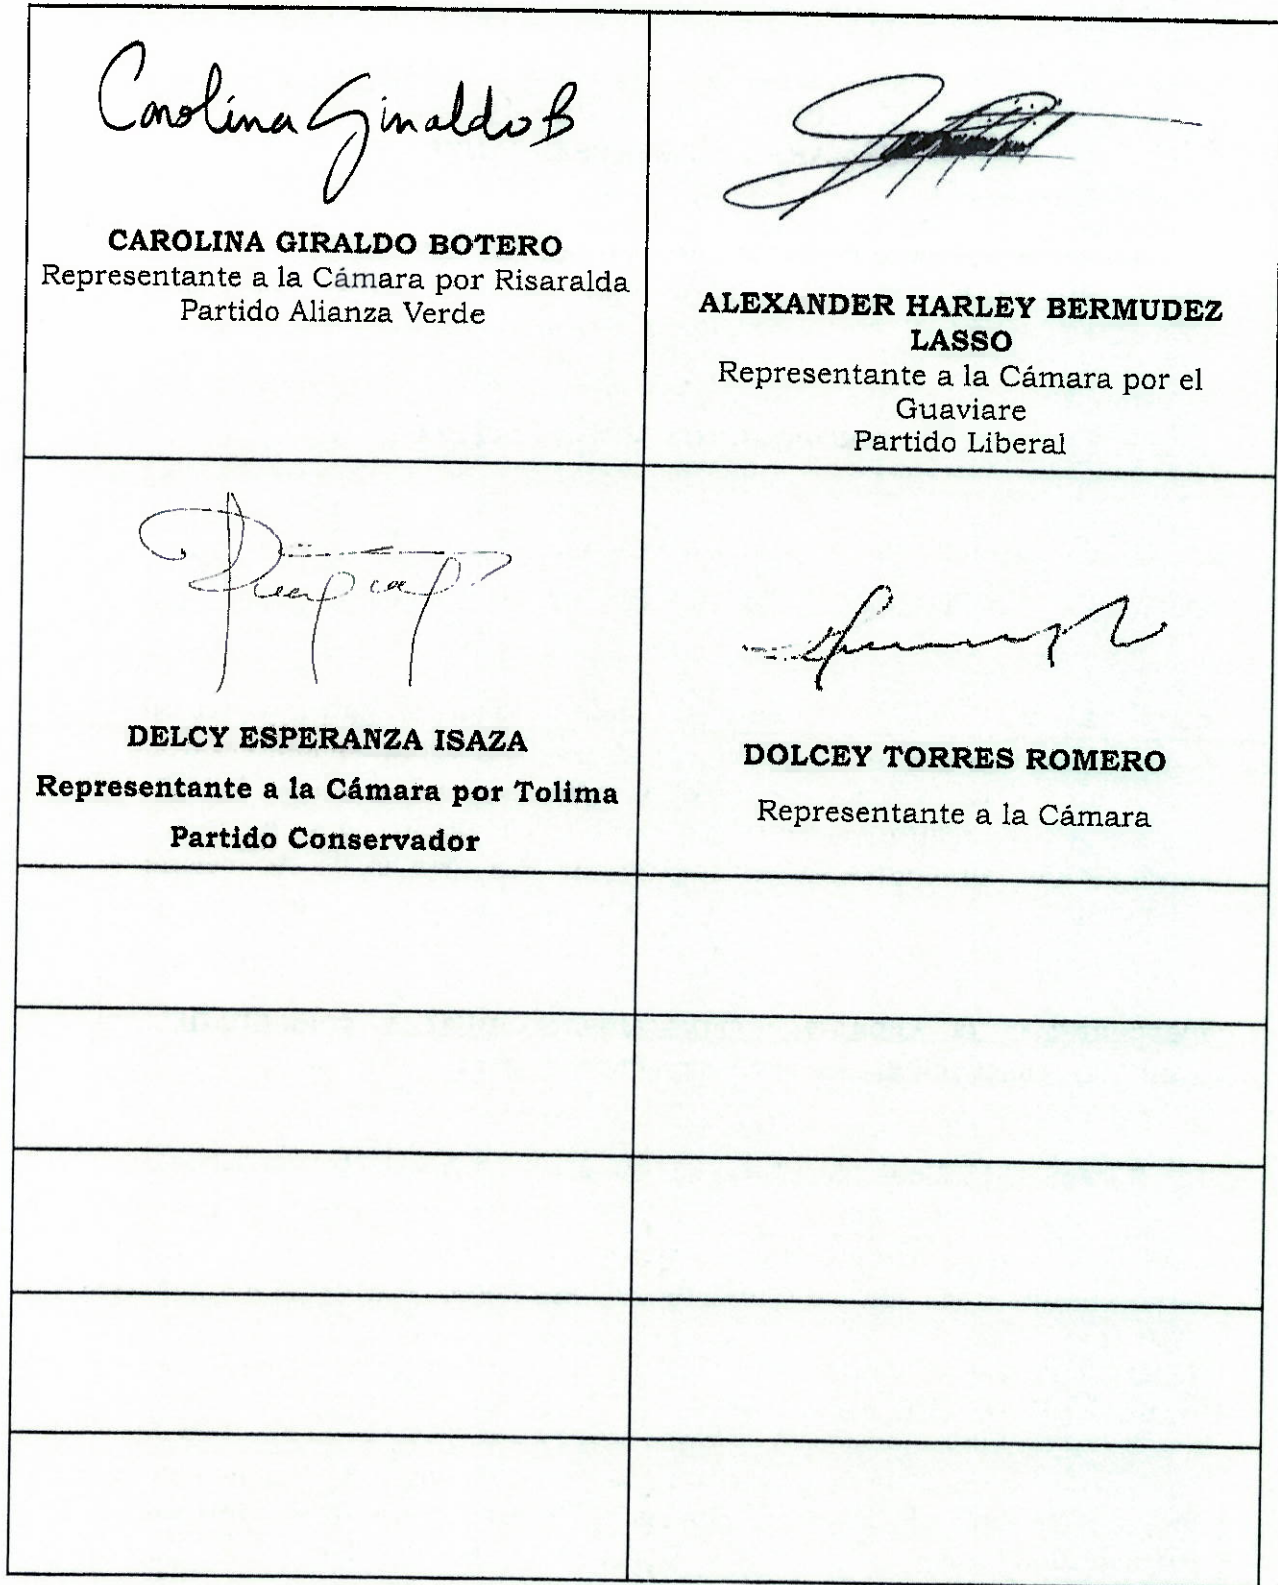 Carolina Giraldo B
CAROLINA GIRALDO BOTERO
Representante a la Cámara por Risaralda
Partido Alianza Verde
ALEXANDER HARLEY BERMUDEZ
LASSO
Representante a la Cámara por el
Guaviare
Partido Liberal
DELCY ESPERANZA ISAZA
Representante a la Cámara por Tolima
Partido Conservador
DOLCEY TORRES ROMERO
Representante a la Cámara